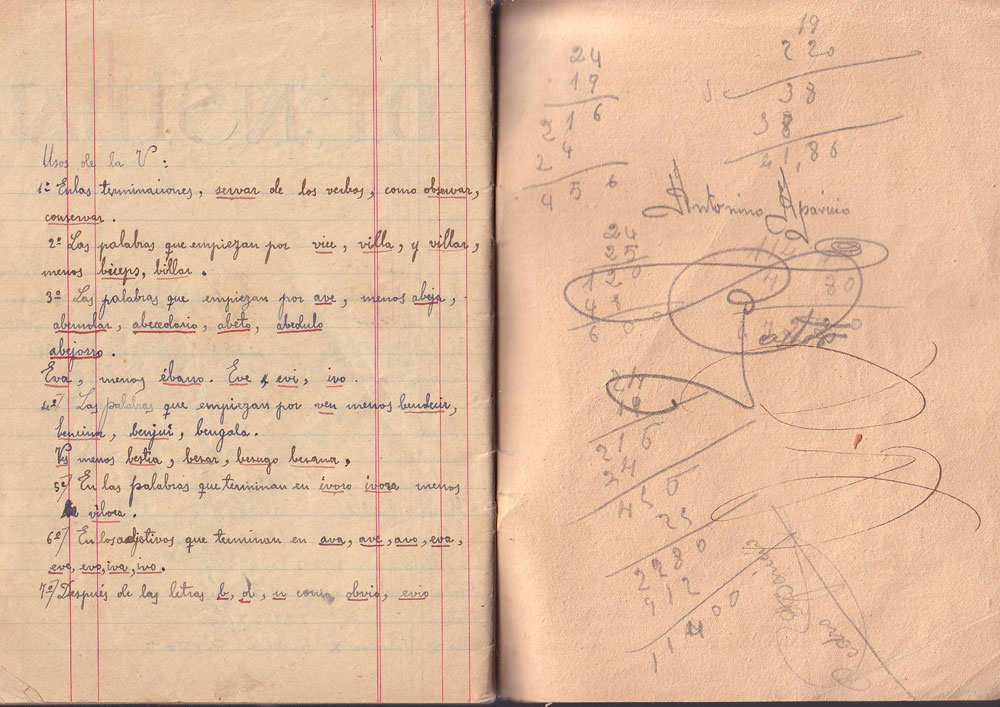 Usos de la V :
1º Enlas terminaciones, servar de los verbos, como observar,
conservar.
2º Las palabras que empiezan por vice, villa, y villar,
menos bíceps, billar.
3º Las palabras que empiezan por ave, menos abeja,
abemolar, abecedario, abeto, abedulo
abejorro.
Eva, menos ébano. Eve y evi, ivo.
4º/ Las palabras que empiezan por ven menos bendecir,
bencina, benjuí, bengala.
Ves menos bestia, besar, besugo besana,
5º/ En las palabras que terminan en ívoro ívora menos
víbora.
6º/ En los adjetivos que terminan en ava, ave, avo, eva,
eve, evo, iva, ivo.
7º/ Después de las letras b, d, n como obvio,
24
19
216
24
456
19
220
38
38
41,86
Antonino Aparicio
24
25
120
48
600
24
19
216
24
450
25
2280
912
11400
Pedro